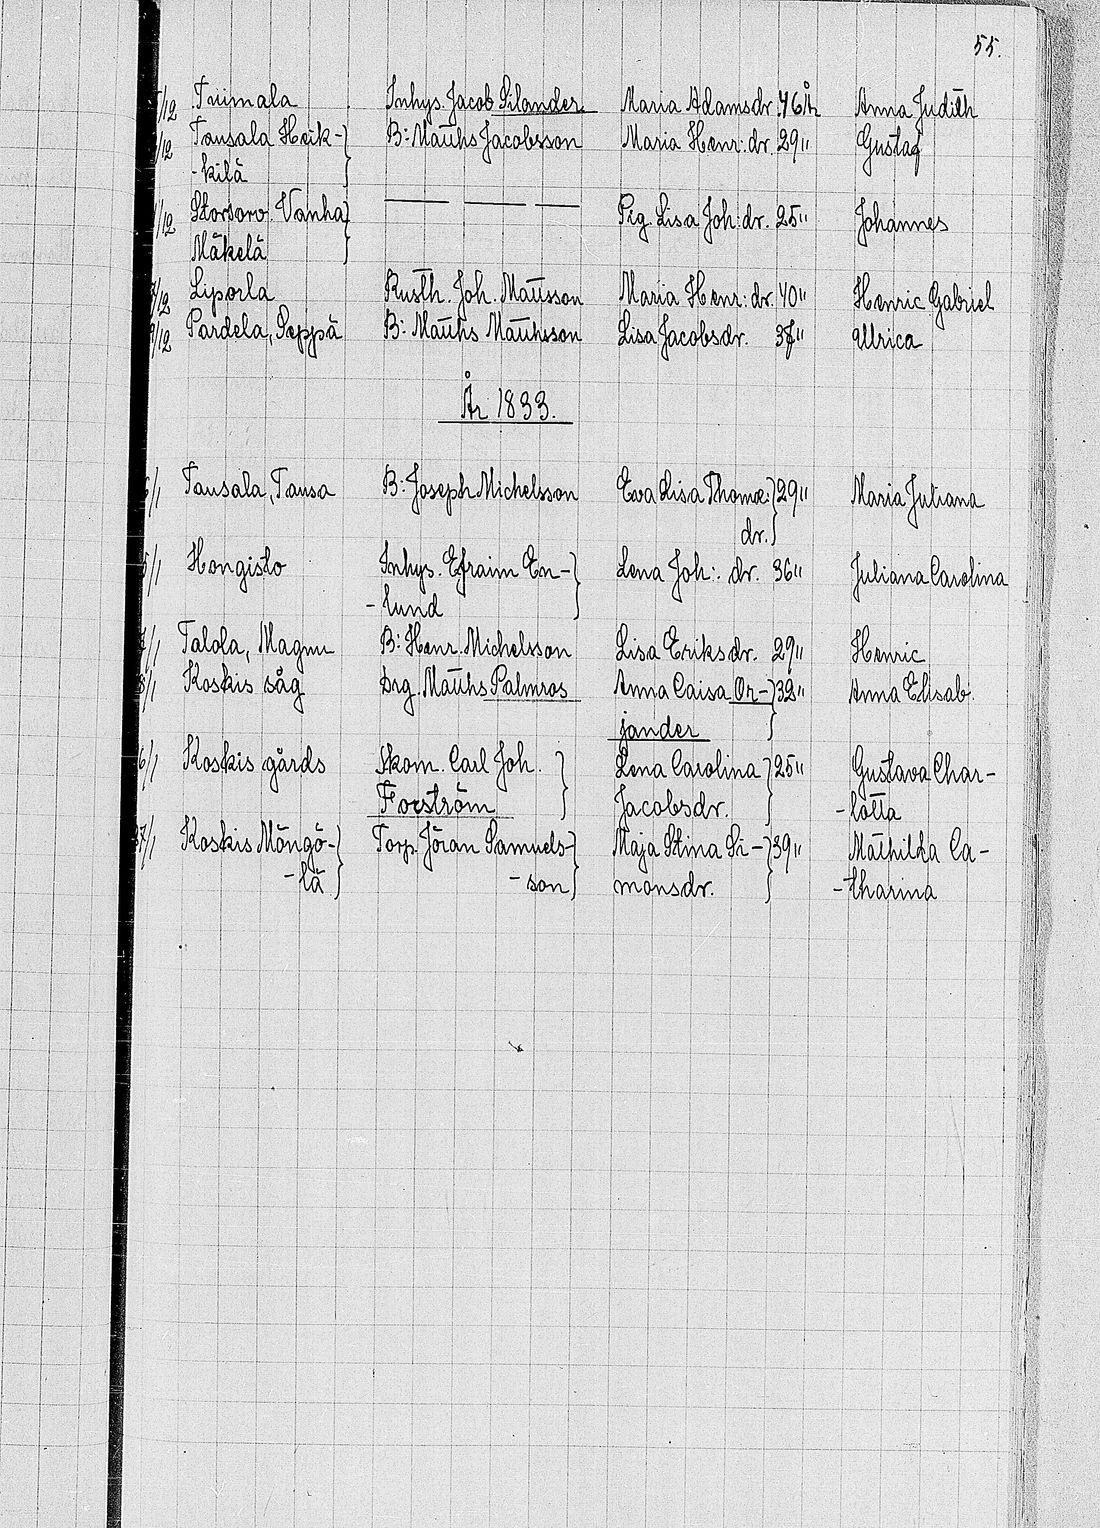 55.
/12 Tuimala Inhys. Jacob Silander Maria Adamsdr. 46 År Anna Judith
/12 Tausala Heik-} B: Matths Jacobsson Maria Henr: dr. 29 " Gustaf
-kilä
/12 Storsoro. Vanha} — — — Pig. Lisa Joh: dr. 25 " Johannes
Mäkelä
/12 Liporla Rusth. Joh. Mattsson Maria Henr: dr. 40 " Henric Gabriel
/12 Pardela, Seppä B: Matths Matthsson Lisa Jacobsdr. 37 " Ulrica
År 1833.
/1 Tausala, Tausa B: Joseph Michelsson Eva Lisa Thomæ:} 29 " Maria Juliana
dr.
5/1 Hongisto Inhys. Efraim En-} Lena Joh:. dr. 36 " Juliana Carolina
-lund
7/1 Talola, Magnu B: Henr. Michelsson Lisa Eriksdr. 29 " Henric
8/1 Koskis såg Drg. Matths Palmros Anna Caisa Or-} 32 " Anna Elisab.
jander
6/1 Koskis gårds Skom. Carl Joh.} Lena Carolina} 25 " Gustava Char-
Forström Jacobsdr. -lotta
27/1 Koskis Möngö-} Torp. Jöran Samuels-} Maja Stina Si-} 39 " Mathilda Ca-
-lä -son monsdr. -tharina